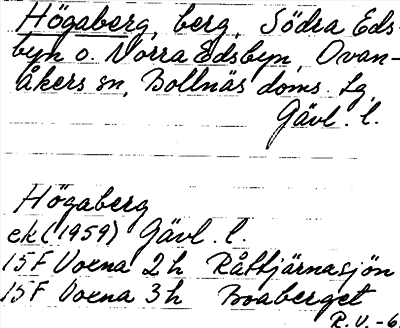 Högaberg, berg, Södra Eds-
byn o. Norra Edsbyn, Ovan-
åkers sn, Bollnäs doms. lg,
Gävl. l.
Högaberg
ek (1959) Gävl. l.
15F Voxna 2h Råttjärnasjön
15F Voxna 3h Boaberget
R.V.-6